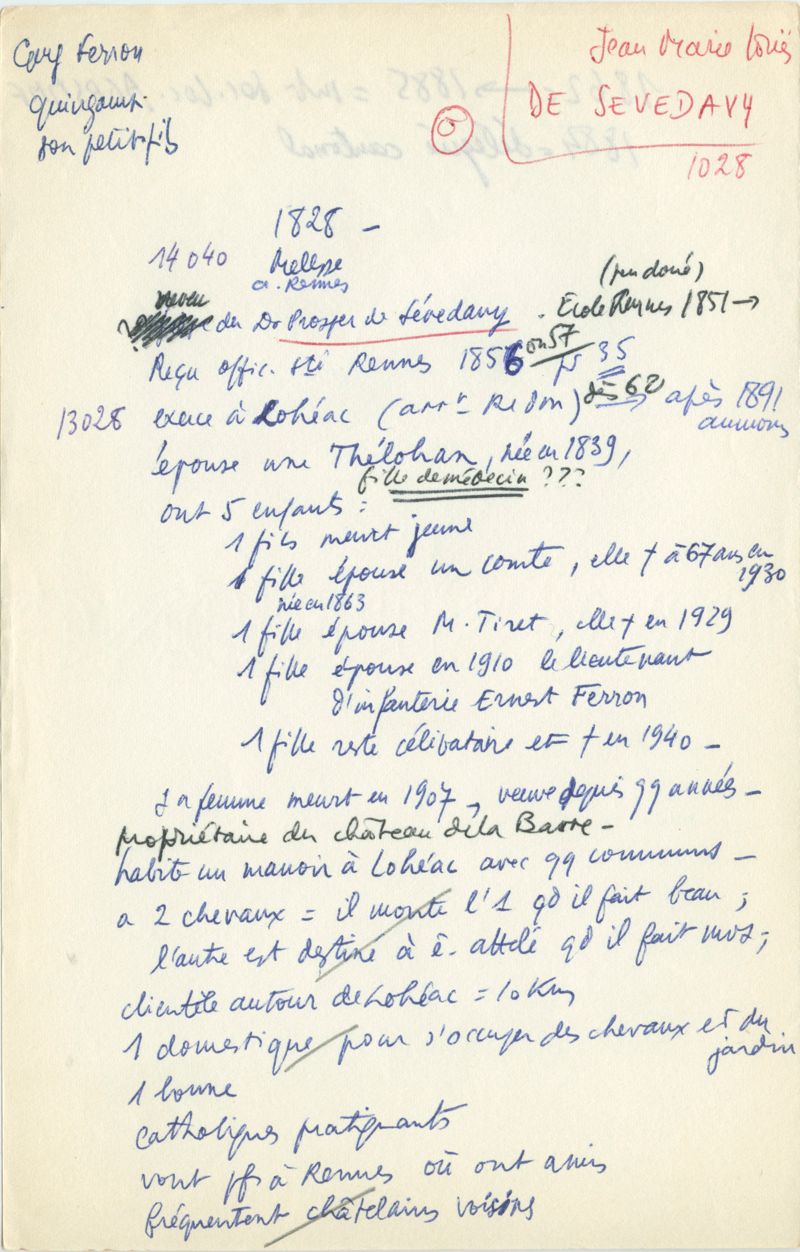 Guy Ferron
Quingamt.
son petit-fils
Jean Marie Louis
DE SEVEDAVY
1028
1828 -
14040 Melesse
a. Rennes
neveu du Dr Prosper de Sévedavy. Ecole Rennes 1851 →
(peu doué)
Reçu offic. sté Rennes 1856 ou 57 ps 35
13028 exerce à Lohéac (arrt Redon) dès 62 → après 1891
au moins
épouse une Thélohan, née en 1839,
fille de médecin ???
ont 5 enfants :
1 fils meurt jeune
1 fille épouse un comte, elle † à 67 ans en
1930
née en 1863
1 fille épouse M. Tiret, elle † en 1929
1 fille épouse en 1910 le lieutenant
d'infanterie Ernest Ferron
1 fille reste célibataire et † en 1940 -
sa femme meurt en 1907, veuve depuis qq années -
propriétaire du château de la Barre -
habite un manoir à Lohéac avec qq communs -
a 2 chevaux = il monte l'1 qd il fait beau ;
l'autre est destiné à ê. attelé qd il fait mvs ;
clientèle autour de Lohéac = 10 Kms
1 domestique pour s'occuper des chevaux et du
jardin
1 bonne
catholiques pratiquants
vont pfs à Rennes où ont amis
fréquentent châtelains voisins